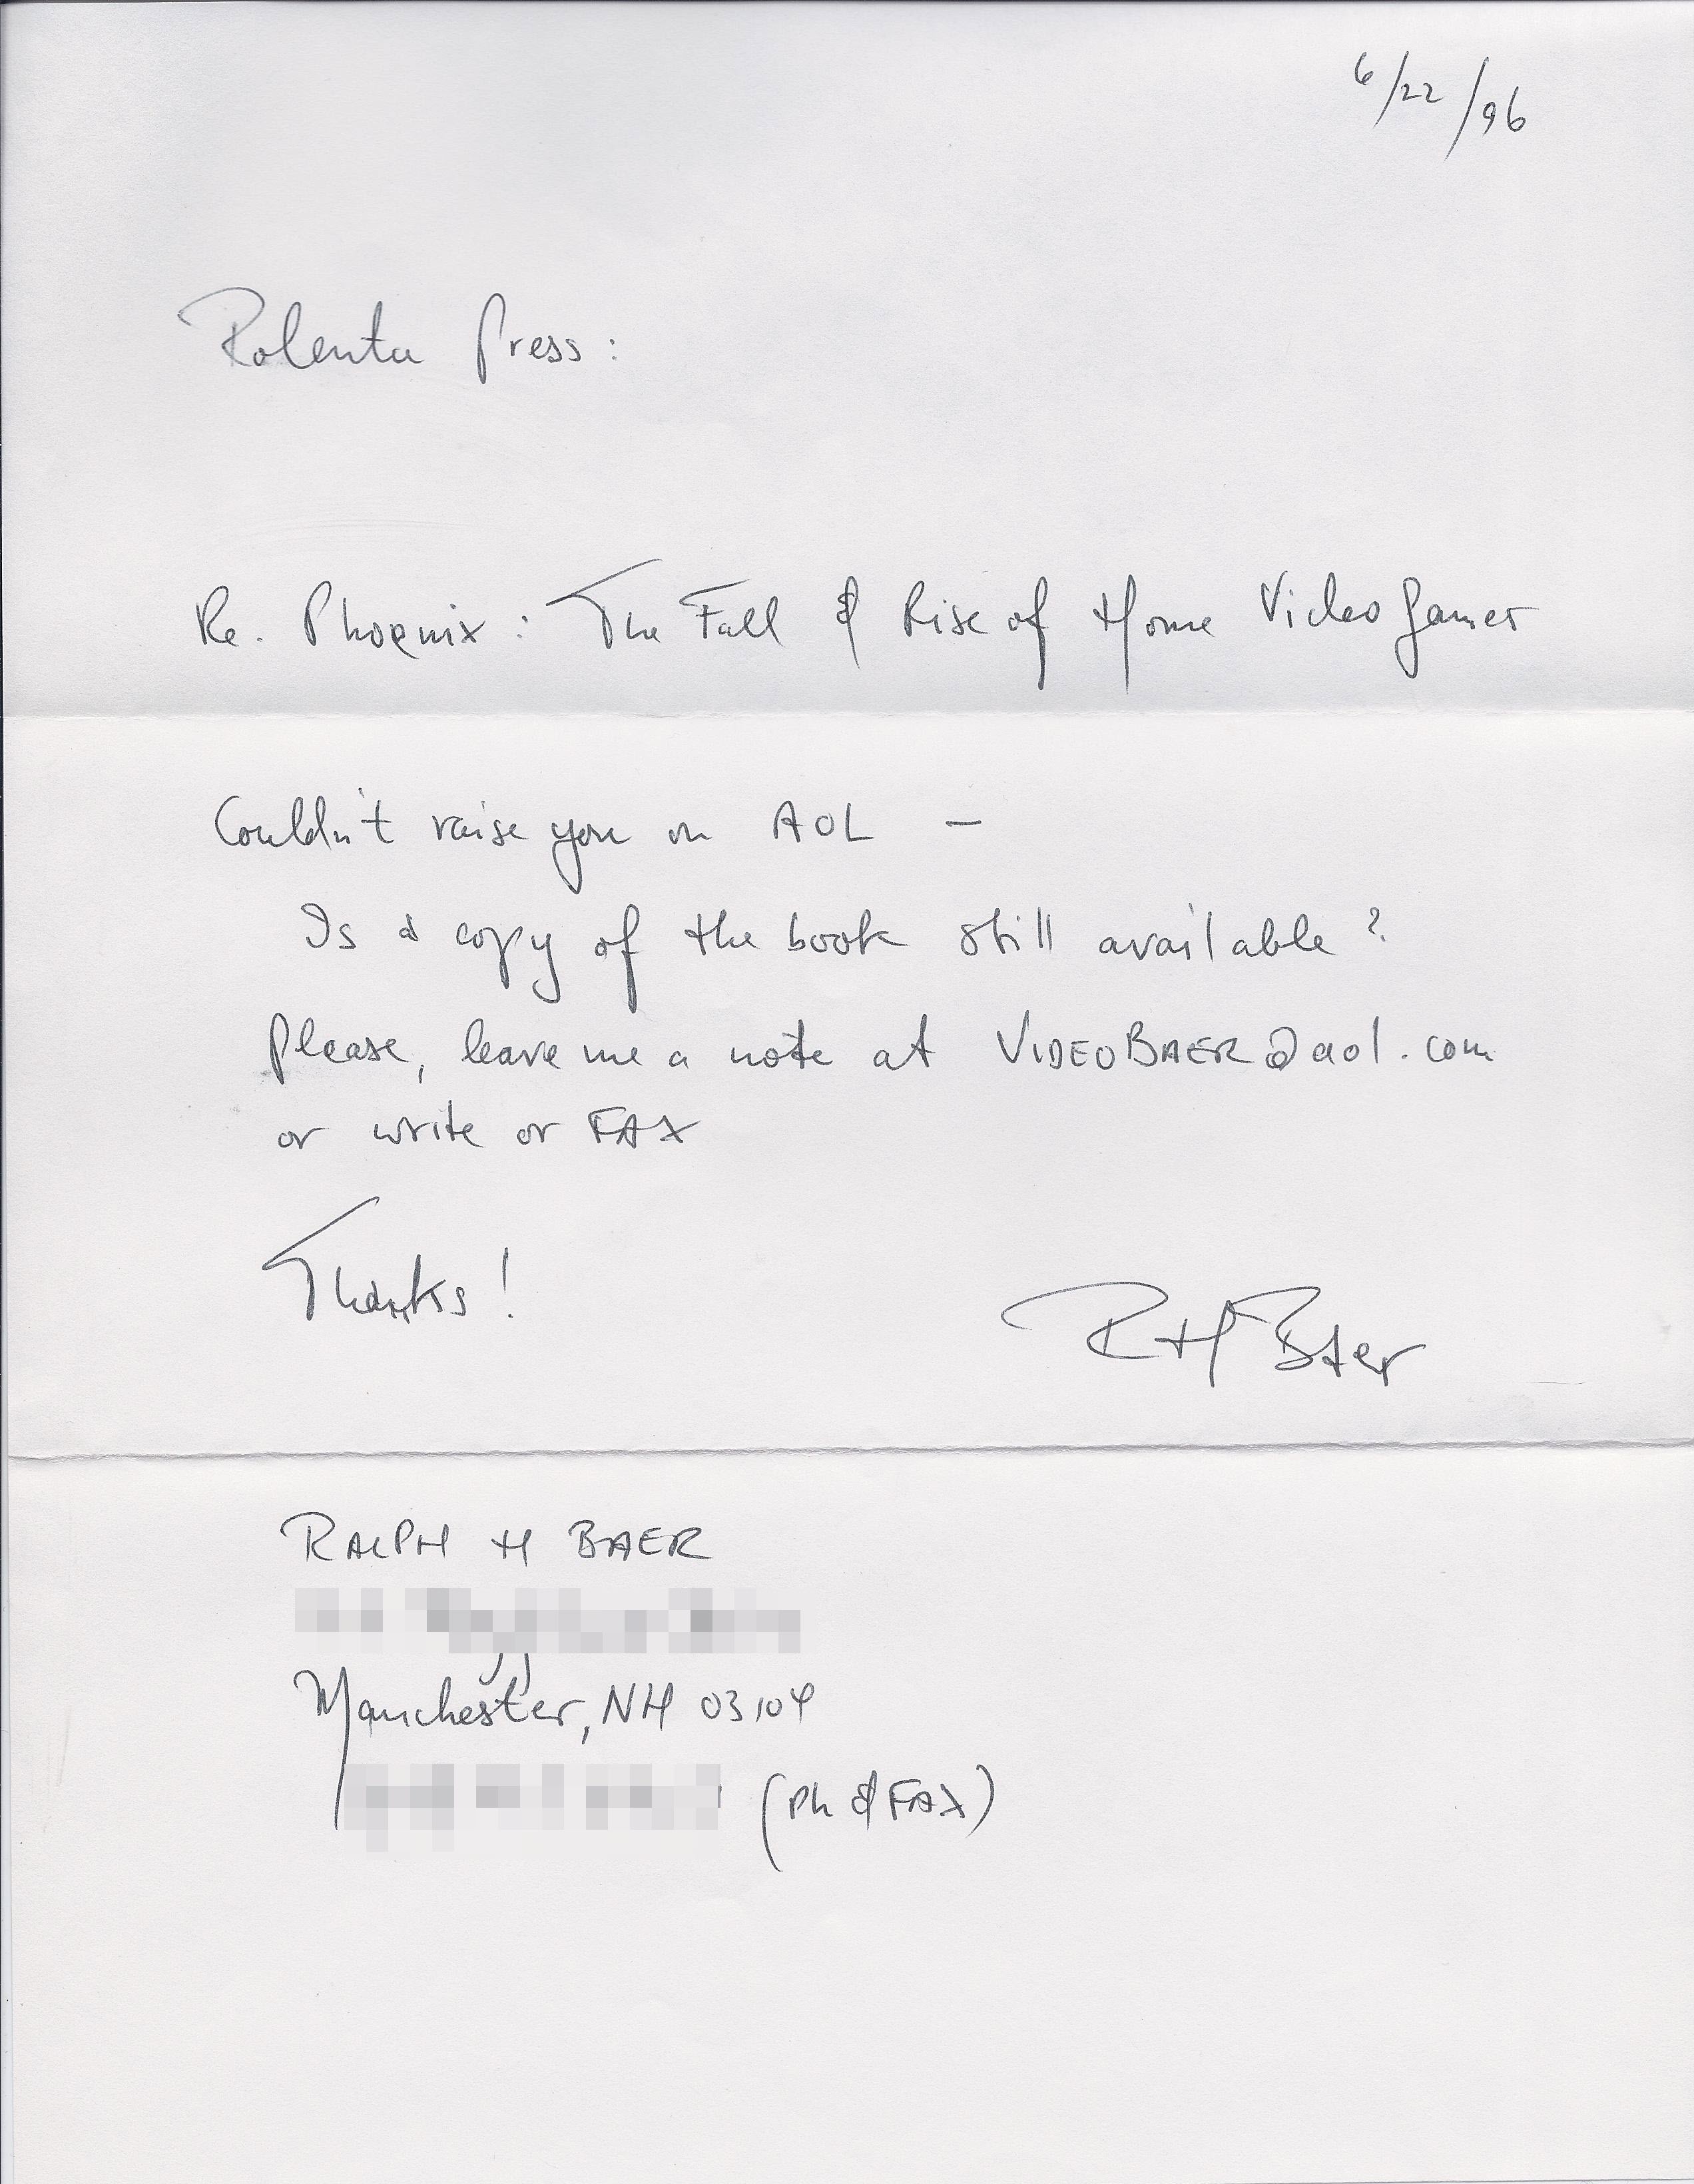 6/22/96
Rolenta Press:
Re. Phoenix: The Fall & Rise of Home Video Games
Couldn't raise you on AOL —
Is a copy of the book still available?
Please, leave me a note at VIDEOBAER@aol.com
or write or FAX
Thanks!
RH Baer
RALPH H BAER
Manchester, NH 03104
(Ph & FAX)